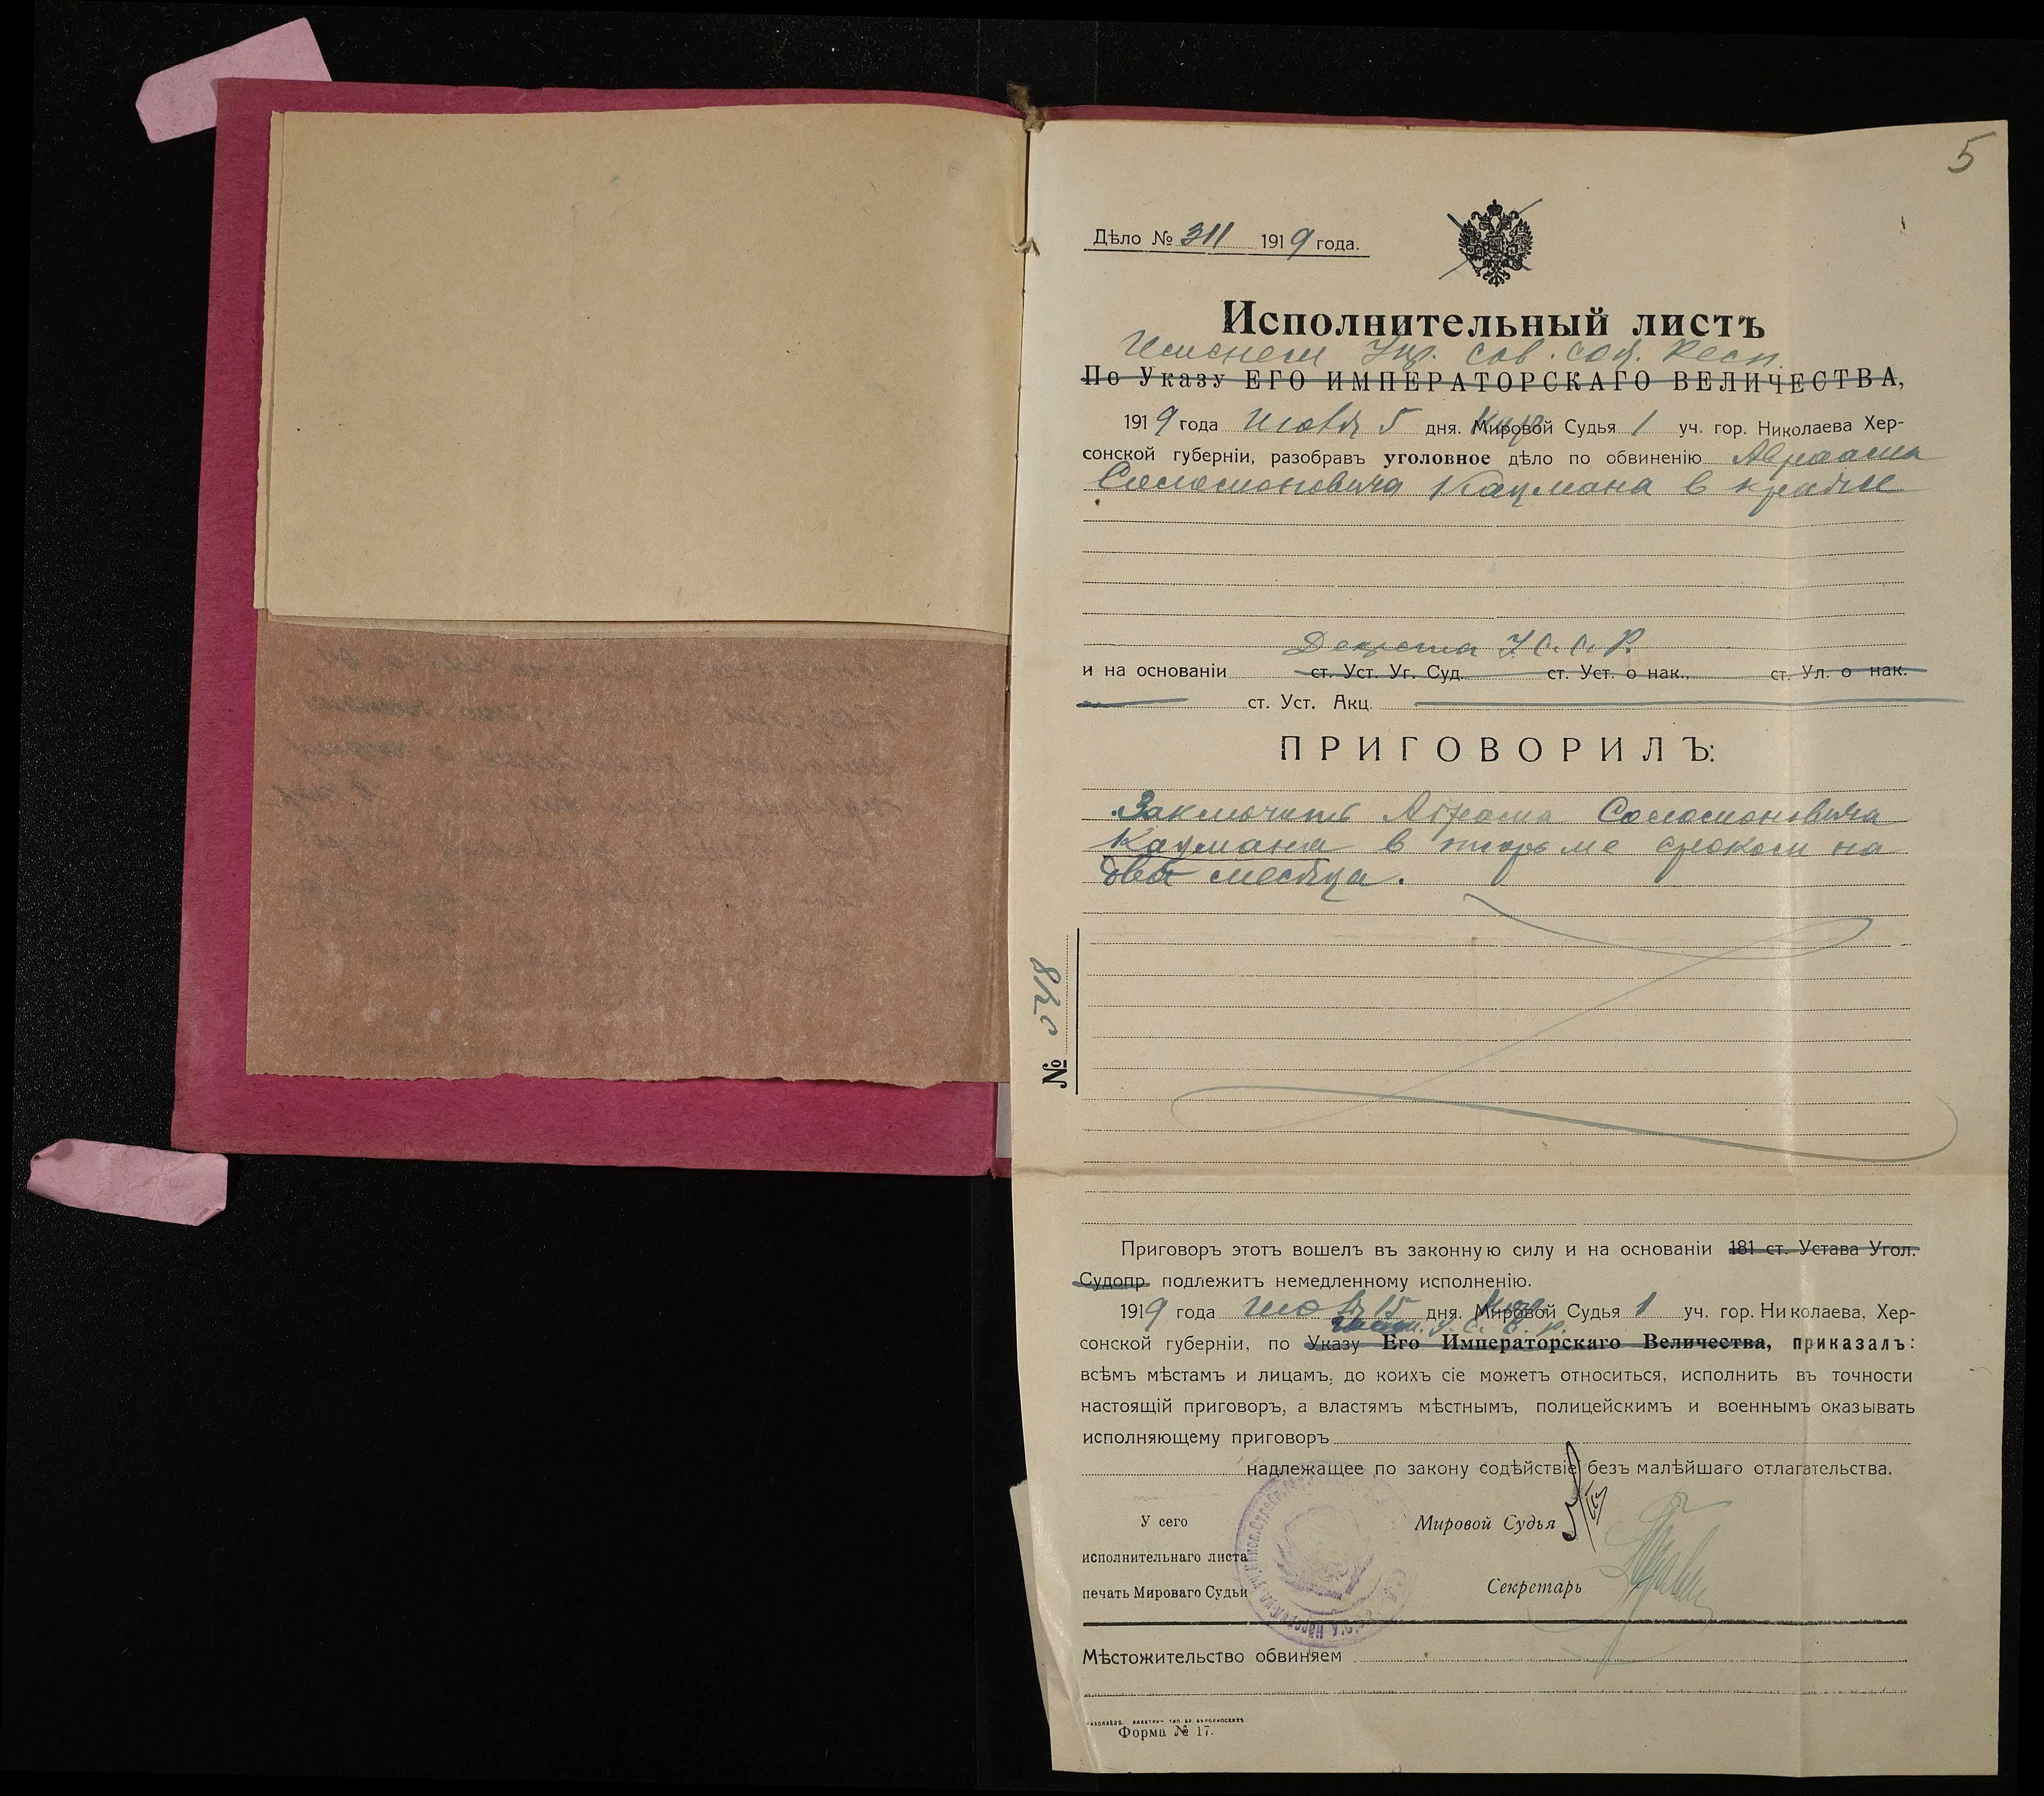 5
Дѣло № 311 1919 года.
Исполнительный листъ
Именем Укр. Сов. Соц. Респ.
По Указу ЕГО ИМПЕРАТОРСКАГО ВЕЛИЧЕСТВА,
1919 года 5 дня. Мировой Судья 1 уч. гор. Николаева Хер-
сонской губерніи, разобравъ уголовное дѣло по обвиненію Авраама
Соломоновича Кацмана в краже
Декрета У.С.С.Р.
и на основаніи ст. Уст. Уг. Суд. ст. Уст. о нак., ст. Ул. о нак.
ст. Уст. Акц.
ПРИГОВОРИЛЪ:
Заключить Абрама Соломоновича
Кацмана в тюрьме сроком на
два месяца.
№ 820
Приговоръ этотъ вошелъ въ законную силу и на основаніи 181 ст. Устава Угол.
Судопр подлежитъ немедленному исполненію.
1919 года 15 дня. Мировой Судья 1 уч. гор. Николаева, Хер-
сонской губерніи, по Указу Его Императорскаго Величества, приказалъ:
всѣмъ мѣстамъ и лицамъ, до коихъ сіе можетъ относиться, исполнить въ точности
настоящій приговоръ, а властямъ мѣстнымъ, полицейскимъ и военнымъ оказывать
исполняющему приговоръ
надлежащее по закону содѣйствіе безъ малѣйшаго отлагательства.
У сего
исполнительнаго листа
печать Мироваго Судьи
Мировой Судья
Секретарь
Мѣстожительство обвиняем
Форма № 17.